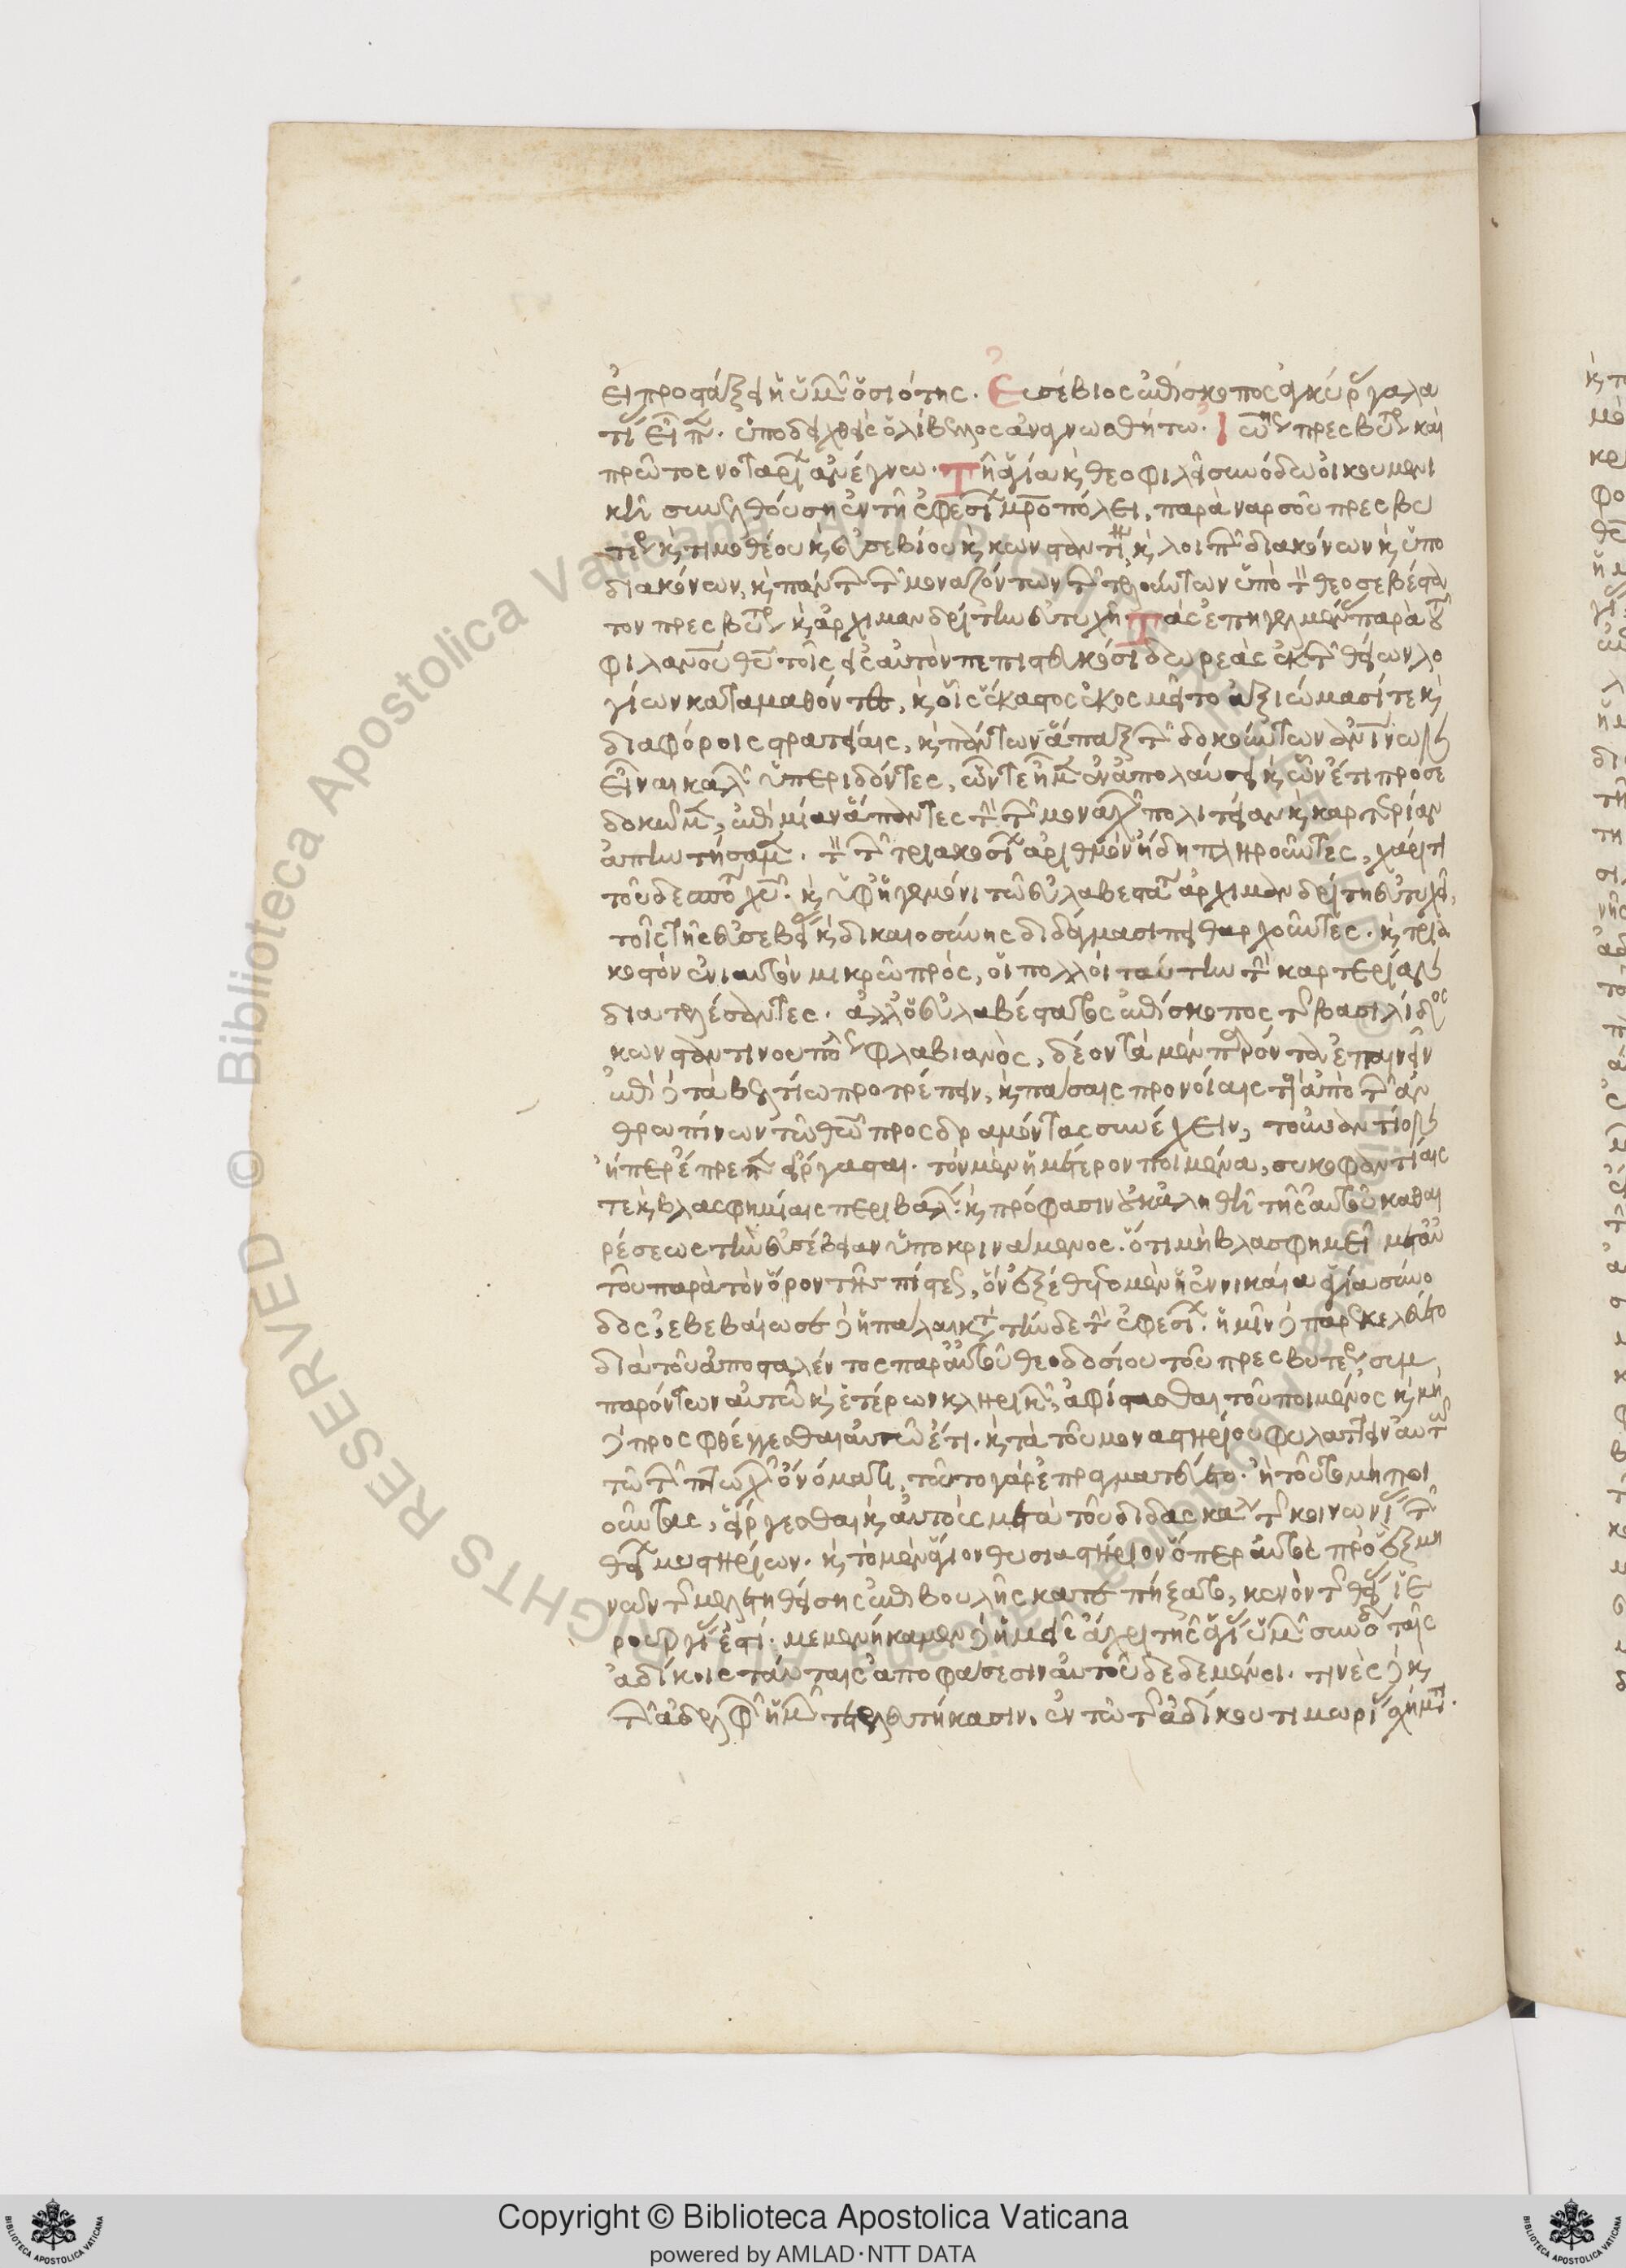 εἰ προστάξει ἡ ὑμῶν ὁσιότης. Εὐσέβιος ἐπίσκοπος ἀγκύρας γαλα
τίας εἶπεν. ὑποδειχθεὶς ὁ λίβελλος ἀναγνωσθήτω. Ἰωάννης πρεσβύτερος καὶ
πρῶτος νοταρίων ἀνέγνω. Τῇ ἁγίᾳ καὶ θεοφιλεῖ συνόδῳ οἰκουμενι
κῇ συνελθούσῃ ἐν τῇ ἐφεσίων μητροπόλει, παρὰ ναρσοῦ πρεσβυ
τέρου καὶ τιμοθέου καὶ εὐσεβίου καὶ κωνσταντίνου καὶ λοιπῶν διακόνων καὶ ὑπο
διακόνων, καὶ πάντων τῶν μοναζόντων τῶν τελούντων ὑπὸ τὸν θεοσεβέστα
τον πρεσβύτερον καὶ ἀρχιμανδρίτην εὐτυχῆ Τὰς ἐπηγγελμένας παρὰ τοῦ
φιλανθρώπου θεοῦ τοῖς εἰς αὐτὸν πεπιστευκόσι δωρεὰς ἐκ τῶν θείων λο
γίων καταμαθόντες, καὶ οἷς ἕκαστος ἐκοσμεῖτο ἀξιώμασί τε καὶ
διαφόροις στρατείαις, καὶ πάντων ἅπαξ τῶν δοκούντων ἀνθρώποις
εἶναι καλῶν ὑπεριδόντες, ὧν τε ἦμεν ἐν ἀπολαύσει καὶ ὧν ἔτι προσε
δοκῶμεν, ἐπὶ μίαν ἅπαντες τὴν τῶν μοναχῶν πολιτείαν καὶ καρτερίαν
ἀπηντήσαμεν. τὸν τῶν τριακοσίων ἀριθμὸν ἤδη πληροῦντες, χάριτι
τοῦ δεσπότου χριστοῦ. καὶ ὑφηγεμόνι τῷ εὐλαβεστάτῳ ἀρχιμανδρίτῃ εὐτυχεῖ,
τοῖς τῆς εὐσεβείας καὶ δικαιοσύνης διδάγμασι πειθαρχοῦντες. καὶ τρια
κοστὸν ἐνιαυτὸν μικροῦ πρὸς, οἱ πολλοὶ ταύτην τὴν καρτερίαν
διατελέσαντες. ἀλλ' ὁ εὐλαβέστατος ἐπίσκοπος τῆς βασιλίδος
κωνσταντινουπόλεως φλαβιανὸς, δέον τὰ μὲν παρόντα ἐπαινεῖν
ἐπὶ δὲ τὰ βελτίω προτρέπειν, καὶ πάσαις προνοίαις τοὺς ἀπὸ τῶν ἀν
θρωπίνων τῷ θεῷ προσδραμόντας συνέχειν, τοὐναντίον
ἤπερ ἔπρεπεν εἴργασται. τὸν μὲν ἡμέτερον ποιμένα, συκοφαντίαις
τε καὶ βλασφημίαις περιβαλὼν. καὶ πρόφασιν οὐκ ἀληθῆ τῆς αὐτοῦ καθαι
ρέσεως τὴν εὐσέβειαν ὑποκρινάμενος. ὅτι μὴ βλασφημεῖ μετ' αὐ
τοῦ παρὰ τὸν ὅρον τῆς πίστεως, ὃν ἐξέθετο μὲν ἡ ἐν νικαίᾳ ἁγία σύνο
δος, ἐβεβαίωσε δὲ ἡ πάλαι κατὰ τήνδε τὴν ἐφεσίων. ἡμῖν δὲ παρεκελεύετο
διὰ τοῦ ἀποσταλέντος παρ' αὐτοῦ θεοδοσίου τοῦ πρεσβυτέρου συμ
παρόντων αὐτῷ καὶ ἑτέρων κληρικῶν, ἀφίστασθαι τοῦ ποιμένος καὶ μὴ
δὲ προσφθέγγεσθαι αὐτῷ ἔτι. καὶ τὰ τοῦ μοναστηρίου φυλάττειν αὐτῷ
τῷ τῶν πτωχῶν ὀνόματι, τοῦτο γὰρ ἐπραγματεύετο. ἢ τοῦτο μὴ ποι
οῦντας, εἴργεσθαι καὶ αὐτοὺς μετὰ τοῦ διδασκάλου τῆς κοινωνίας τῶν
θείων μυστηρίων. καὶ τὸ μὲν ἅγιον θυσιαστήριον ὅπερ αὐτὸς πρὸ ἓξ μη
νῶν τῆς μελετηθείσης ἐπιβουλῆς κατεπήξατο, κενὸν τῆς θείας ἱε
ρουργίας ἐστί. μεμενήκαμεν δὲ ἡμεῖς ἄχρι τῆς ἁγίας ὑμῶν συνόδου ταῖς
ἀδίκοις ταύταις ἀποφάσεσιν αὐτοῦ δεδεμένοι. τινὲς δὲ καὶ
τῶν ἀδελφῶν ἡμῶν τετελευτήκασιν, ἐν τῷ τῆς ἀδίκου τιμωρίας χρήματι.
Copyright © Biblioteca Apostolica Vaticana
powered by AMLAD·NTT DATA